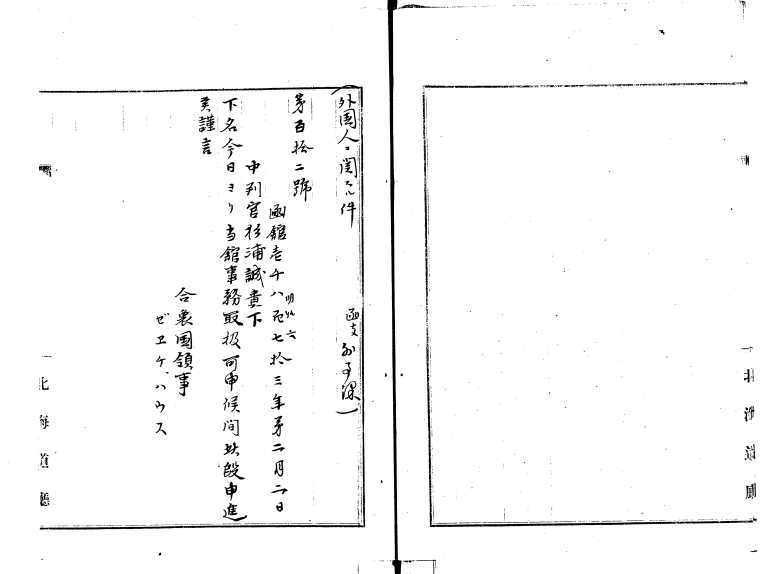 (外国人ニ関スル件 函支外事課)
第百拾二號
函館壱千八百七拾三年第二月二日
明治六
中判官杉浦誠貴下
下名今日ヨリ当館事務取扱可申候間此段申進
美謹言
合衆国領事
ゼエケ,ハウス
北海道廳
北海道廳